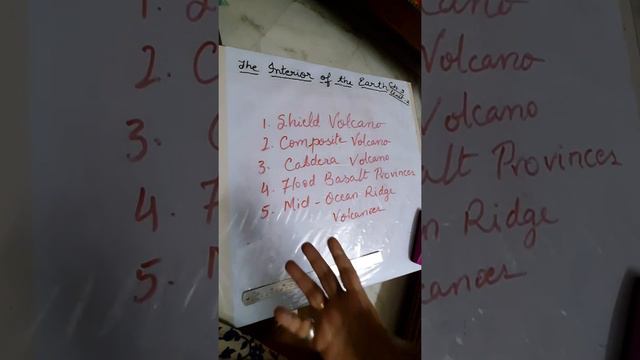 The Interior of the Earth Ch-3
Unit-2
1. Shield Volcano
2. Composite Volcano
3. Caldera Volcano
4. Flood Basalt Provinces
5. Mid-Ocean Ridge
Volcanoes